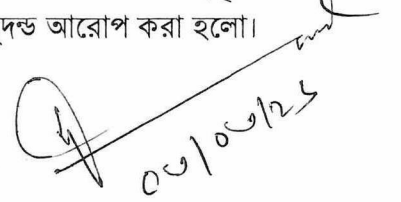 দন্ড আরোপ করা হলো।
০৩/০৩/২১